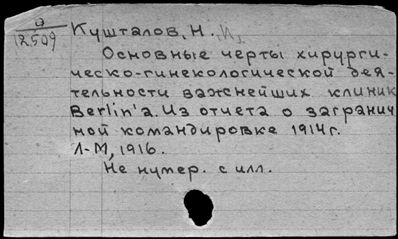 а
12509
Кушталов, Н. И.
Основные черты хирурги-
ческо-гинекологической дея-
тельности важнейших клиник
Berlin'а. Из отчета о загранич
ной командировке 1914г.
Л-М, 1916.
Не нумер. с илл.